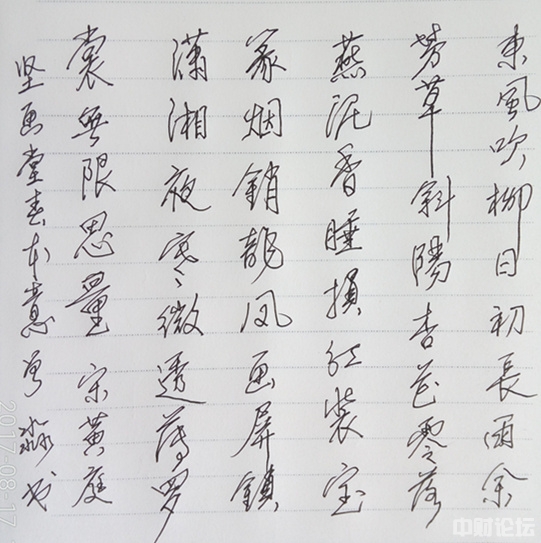 東風吹柳日初長雨余
芳草斜陽杏花零落
燕泥香睡損紅装宝
篆烟銷龍凤画屏鎮
潇湘夜寒微透薄罗
裳無限思量宋黄庭
坚画堂春本意
书
2017-08-17
中财论坛